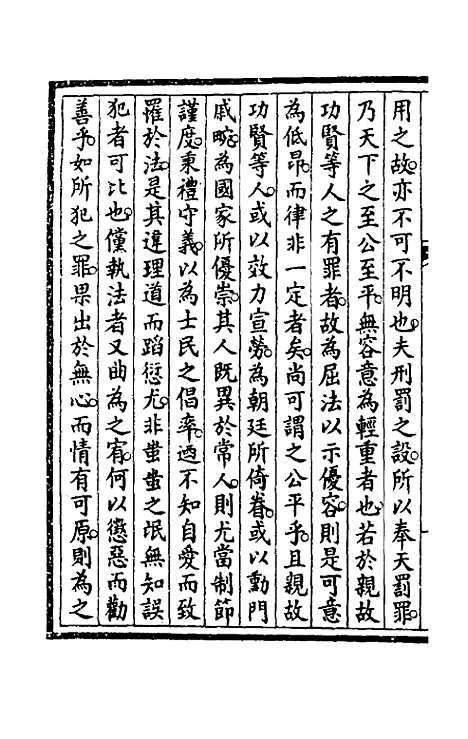 用之故亦不可不明也夫刑罰之設所以奉天罰罪
乃天下之至公至平無容意為輕重者也若於親故
功賢等人之有罪者故為屈法以示優容則是可意
為低昂而律非一定者矣尚可謂之公平乎且親故
功賢等人或以效力宣勞為朝廷所倚眷或以勳門
戚畹為國家所優崇其人既異於常人則尤當制節
謹度秉禮守義以為士民之倡率迺不知自愛而致
罹於法是其違理道而蹈愆尤非蚩蚩之氓無知誤
犯者可比也儻執法者又曲為之宥何以懲惡而勸
善乎如所犯之罪果出於無心而情有可原則為之